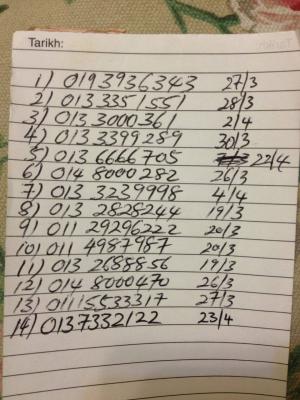 Tarikh:
1) 019 3936343 27/3
2) 013 3351551 28/3
3) 013 3000361 2/4
4) 013 3399289 30/3
5) 013 6666705 22/4
6) 014 8000282 26/3
7) 013 3239998 4/4
8) 013 2828244 19/3
9) 011 29296222 20/3
10) 011 4987987 20/3
11) 013 2688856 19/3
12) 014 8000470 26/3
13) 01115533317 27/3
14) 0137332122 23/4